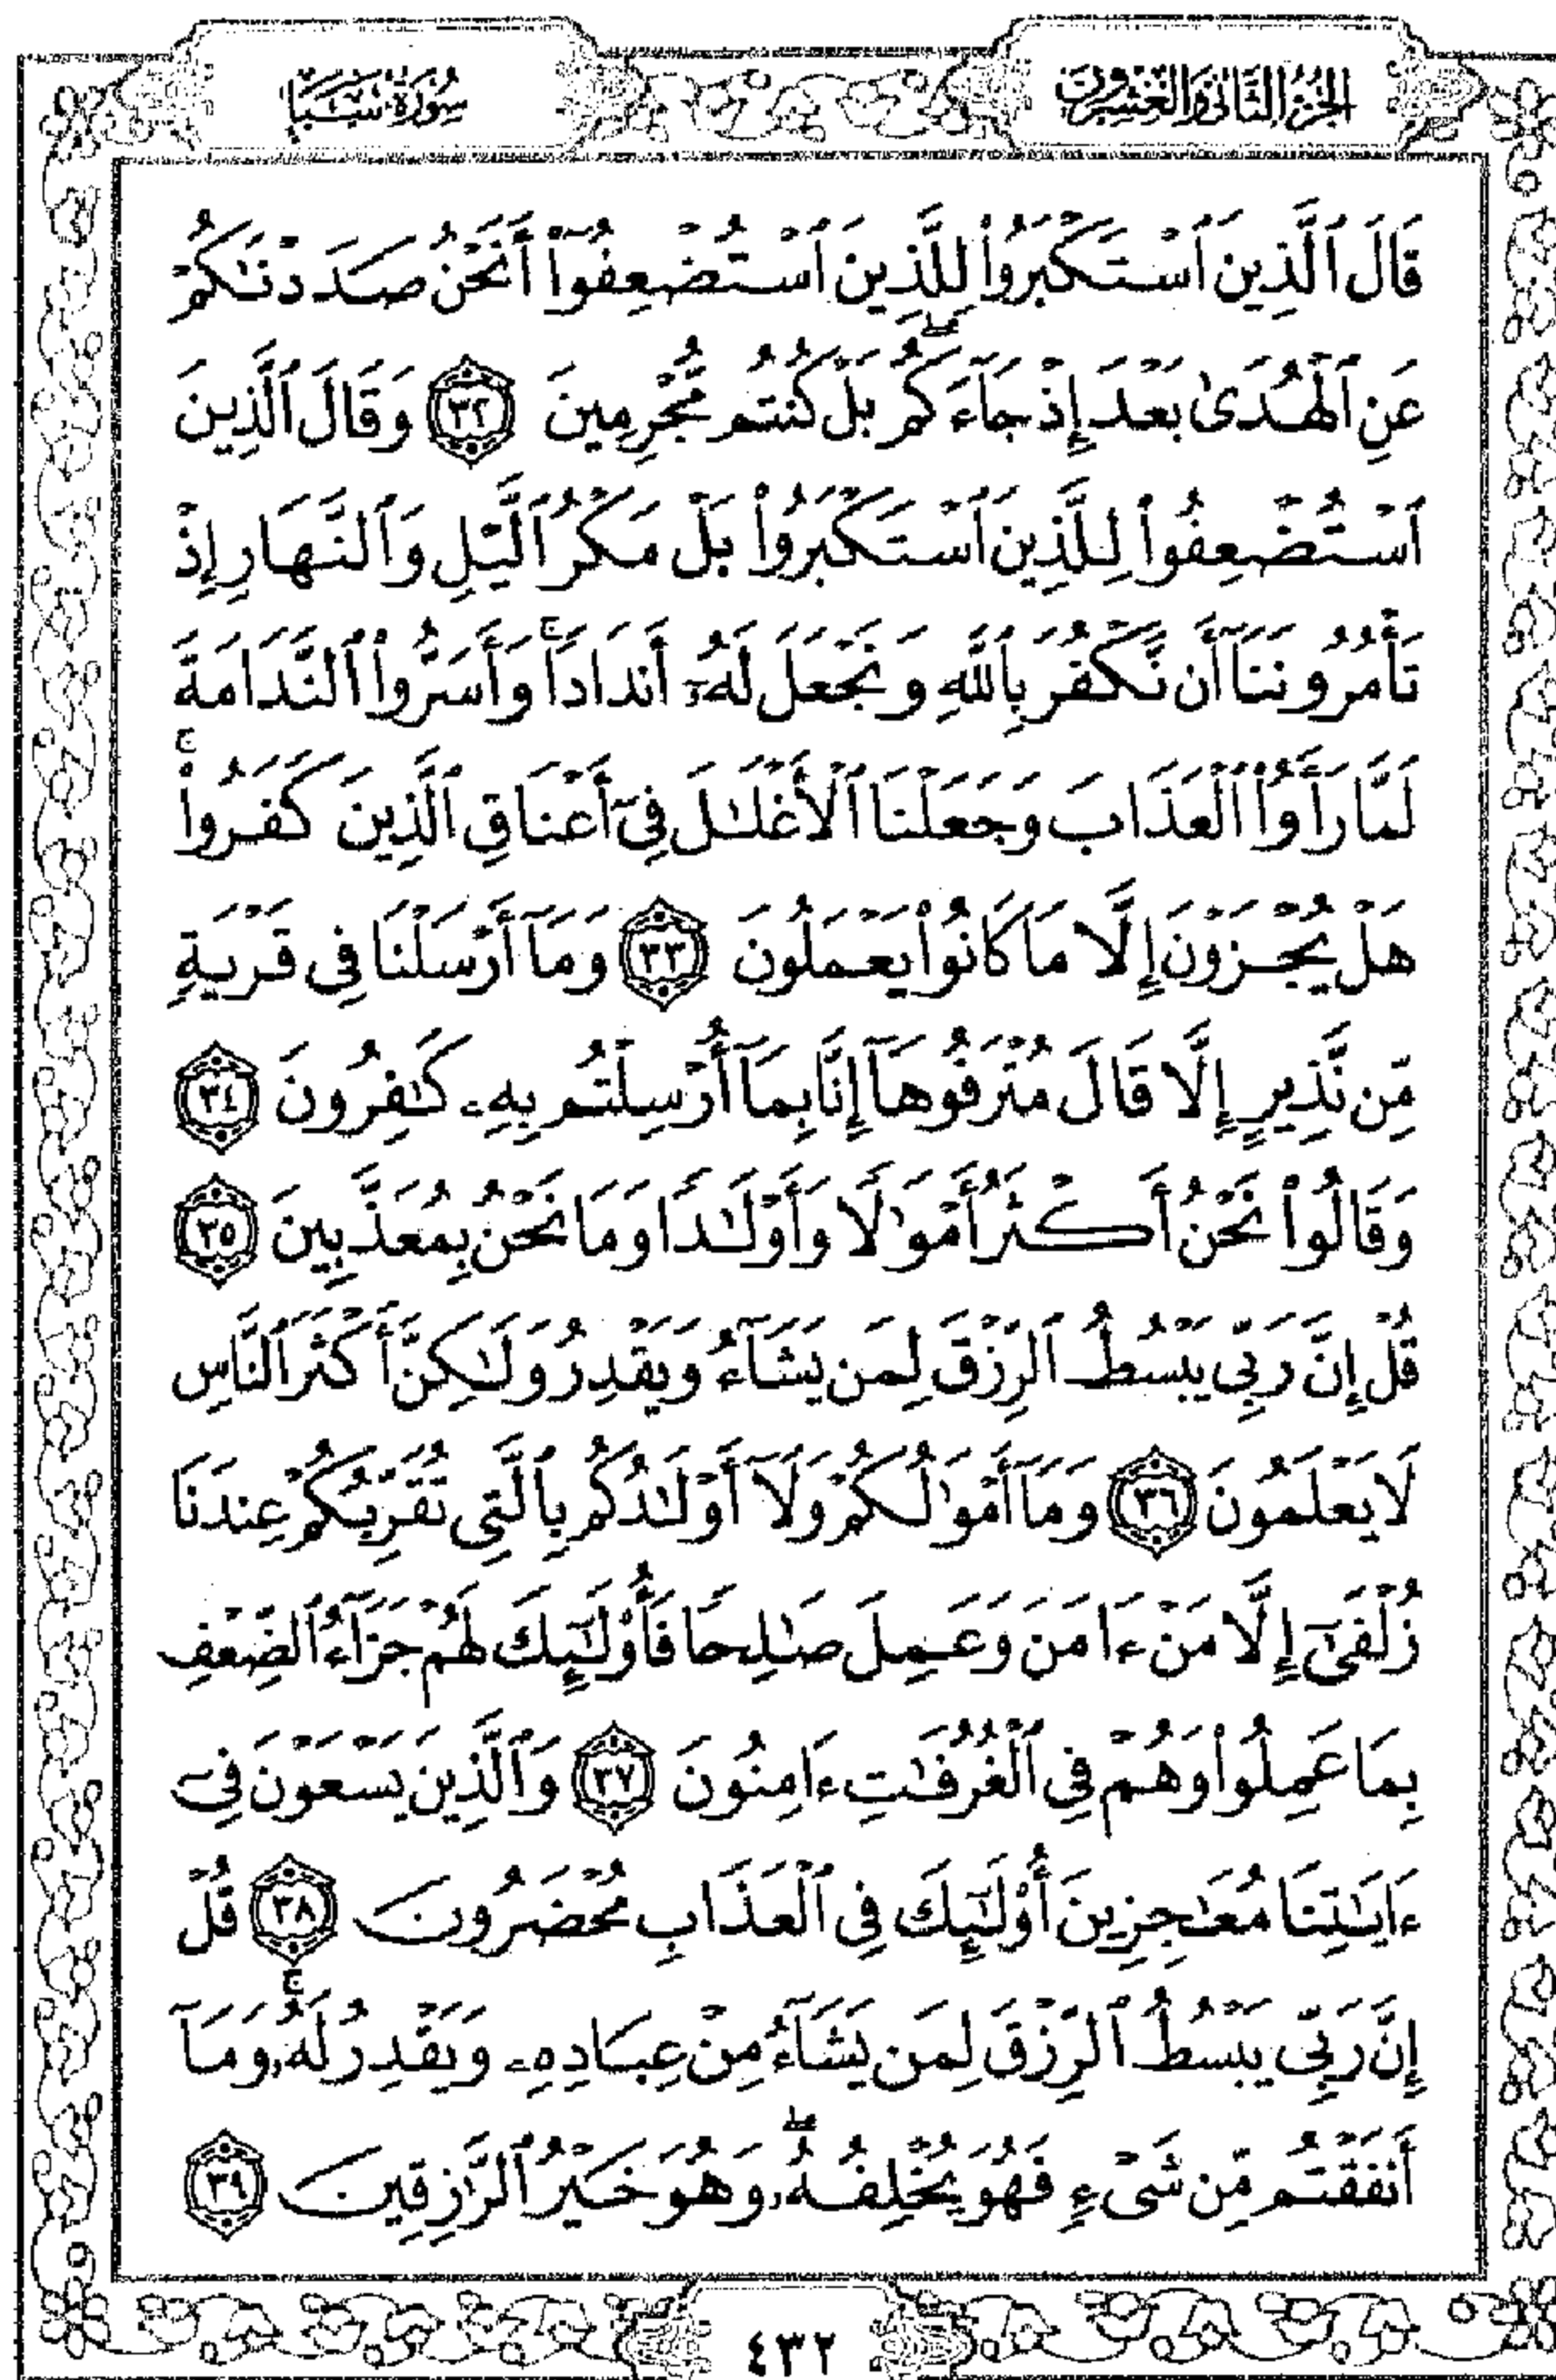 الجزء الثاني والعشرون
سورة سبأ
قَالَ ٱلَّذِينَ ٱسْتَكْبَرُوا۟ لِلَّذِينَ ٱسْتُضْعِفُوٓا۟ أَنَحْنُ صَدَدْنَـٰكُمْ
عَنِ ٱلْهُدَىٰ بَعْدَ إِذْ جَآءَكُمۖ بَلْ كُنتُم مُّجْرِمِينَ ٣٢ وَقَالَ ٱلَّذِينَ
ٱسْتُضْعِفُوا۟ لِلَّذِينَ ٱسْتَكْبَرُوا۟ بَلْ مَكْرُ ٱلَّيْلِ وَٱلنَّهَارِ إِذْ
تَأْمُرُونَنَآ أَن نَّكْفُرَ بِٱللَّهِ وَنَجْعَلَ لَهُۥٓ أَندَادًاۚ وَأَسَرُّوا۟ ٱلنَّدَامَةَ
لَمَّا رَأَوُا۟ ٱلْعَذَابَ وَجَعَلْنَا ٱلْأَغْلَـٰلَ فِىٓ أَعْنَاقِ ٱلَّذِينَ كَفَرُوا۟ۚ
هَلْ يُجْزَوْنَ إِلَّا مَا كَانُوا۟ يَعْمَلُونَ ٣٣ وَمَآ أَرْسَلْنَا فِى قَرْيَةٍ
مِّن نَّذِيرٍ إِلَّا قَالَ مُتْرَفُوهَآ إِنَّا بِمَآ أُرْسِلْتُم بِهِۦ كَـٰفِرُونَ ٣٤
وَقَالُوا۟ نَحْنُ أَكْثَرُ أَمْوَٰلًا وَأَوْلَـٰدًا وَمَا نَحْنُ بِمُعَذَّبِينَ ٣٥
قُلْ إِنَّ رَبِّى يَبْسُطُ ٱلرِّزْقَ لِمَن يَشَآءُ وَيَقْدِرُ وَلَـٰكِنَّ أَكْثَرَ ٱلنَّاسِ
لَا يَعْلَمُونَ ٣٦ وَمَآ أَمْوَٰلُكُمْ وَلَآ أَوْلَـٰدُكُم بِٱلَّتِى تُقَرِّبُكُمْ عِندَنَا
زُلْفَىٰٓ إِلَّا مَنْ ءَامَنَ وَعَمِلَ صَـٰلِحًا فَأُو۟لَـٰٓئِكَ لَهُمْ جَزَآءُ ٱلضِّعْفِ
بِمَا عَمِلُوا۟ وَهُمْ فِى ٱلْغُرُفَـٰتِ ءَامِنُونَ ٣٧ وَٱلَّذِينَ يَسْعَوْنَ فِىٓ
ءَايَـٰتِنَا مُعَـٰجِزِينَ أُو۟لَـٰٓئِكَ فِى ٱلْعَذَابِ مُحْضَرُونَ ٣٨ قُلْ
إِنَّ رَبِّى يَبْسُطُ ٱلرِّزْقَ لِمَن يَشَآءُ مِنْ عِبَادِهِۦ وَيَقْدِرُ لَهُۥۚ وَمَآ
أَنفَقْتُم مِّن شَىْءٍ فَهُوَ يُخْلِفُهُۥۖ وَهُوَ خَيْرُ ٱلرَّٰزِقِينَ ٣٩
٤٣٢